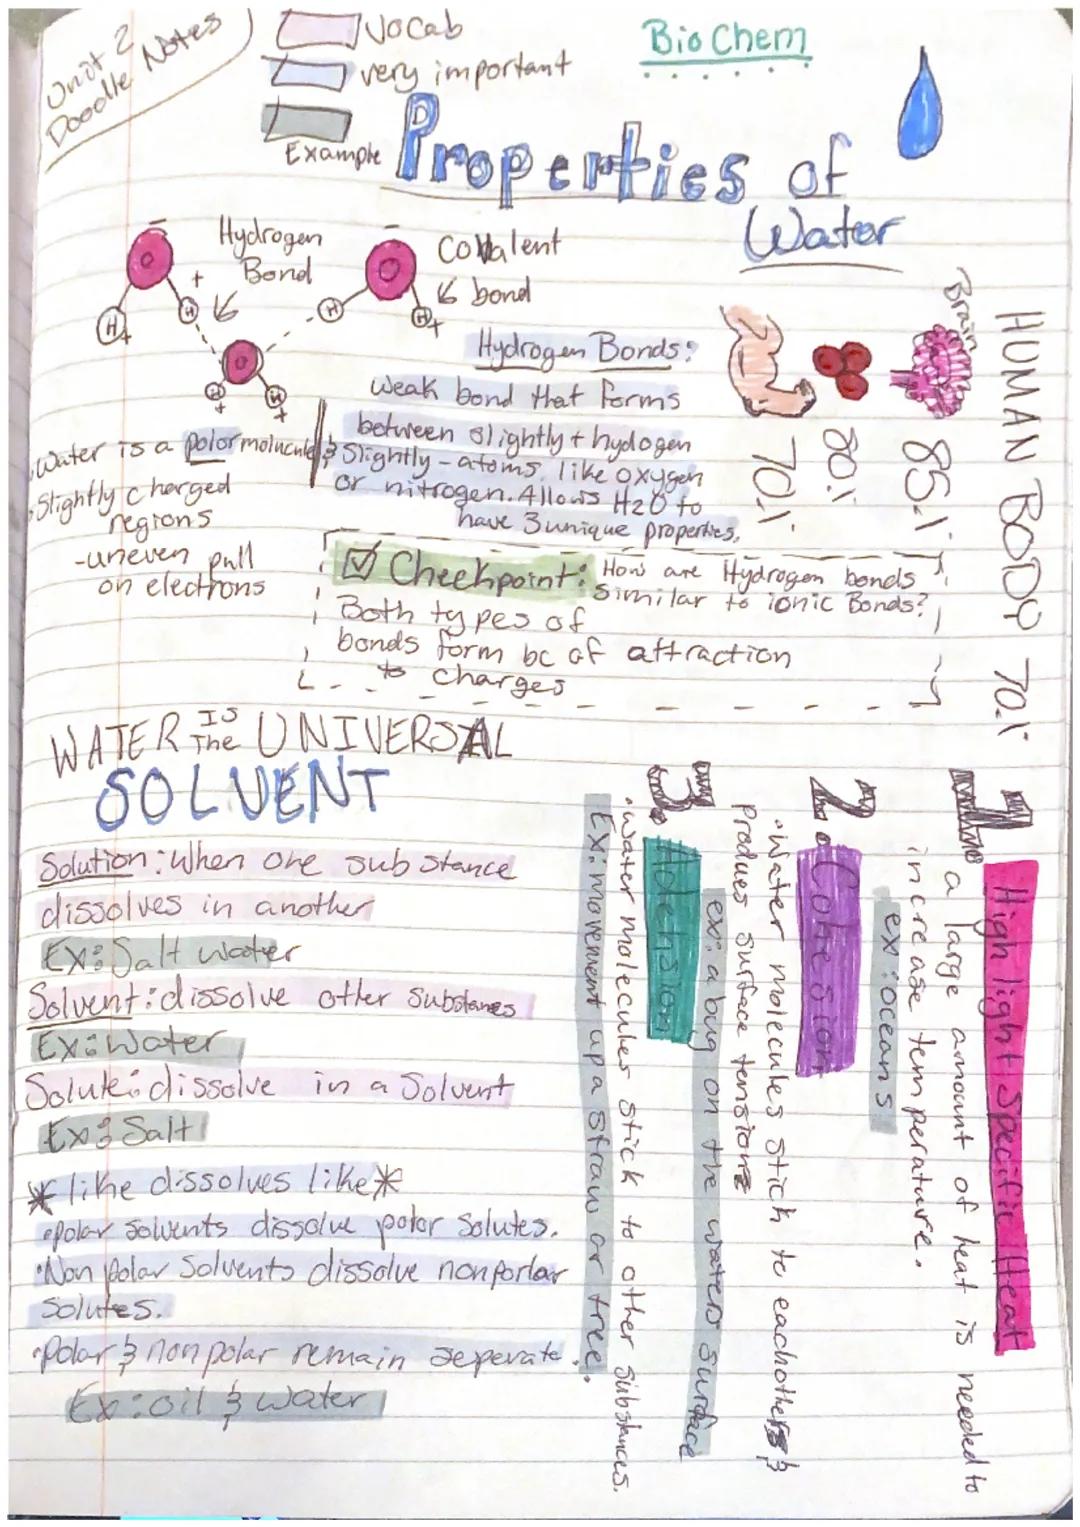 Unit 2
Doodle Notes
Vocab
very important
Example
BioChem
Properties of
Water
Hydrogen
Bond
Covalent
bond
H
+
H
+
H
H
+
H
+
H
+
Hydrogen Bonds:
weak bond that forms
between slightly + hydogen
& Slightly - atoms like oxygen
or nitrogen. Allows H2O to
have 3 unique properties.
•Water is a polar molucule
•Slightly charged
regions
-uneven pull
on electrons
HUMAN BODY 70%
Brain
85%
80%
70%
Checkpoint: How are Hydrogen bonds
similar to ionic Bonds?
Both types of
bonds form bc of attraction
to charges
WATER IS The UNIVERSAL
SOLVENT
Solution: When one substance
dissolves in another
Ex: Salt water
Solvent: dissolve other substanes
Ex: Water
Solute: dissolve in a Solvent
Ex: Salt
*like dissolves like*
•polar solvents dissolve polar solutes.
•Non polar solvents dissolve nonporlar
solutes.
•Polar & non polar remain seperate.
Ex: oil & water
1. High light Specific Heat
a large amount of heat is needed to
increase temperature.
ex: oceans
2. Cohesion
•Water molecules stick to eachother &
produes surface tension
ex: a bug on the waters surface
3. Adehsion
•water molecules stick to other substances.
Ex: movement up a straw or tree.